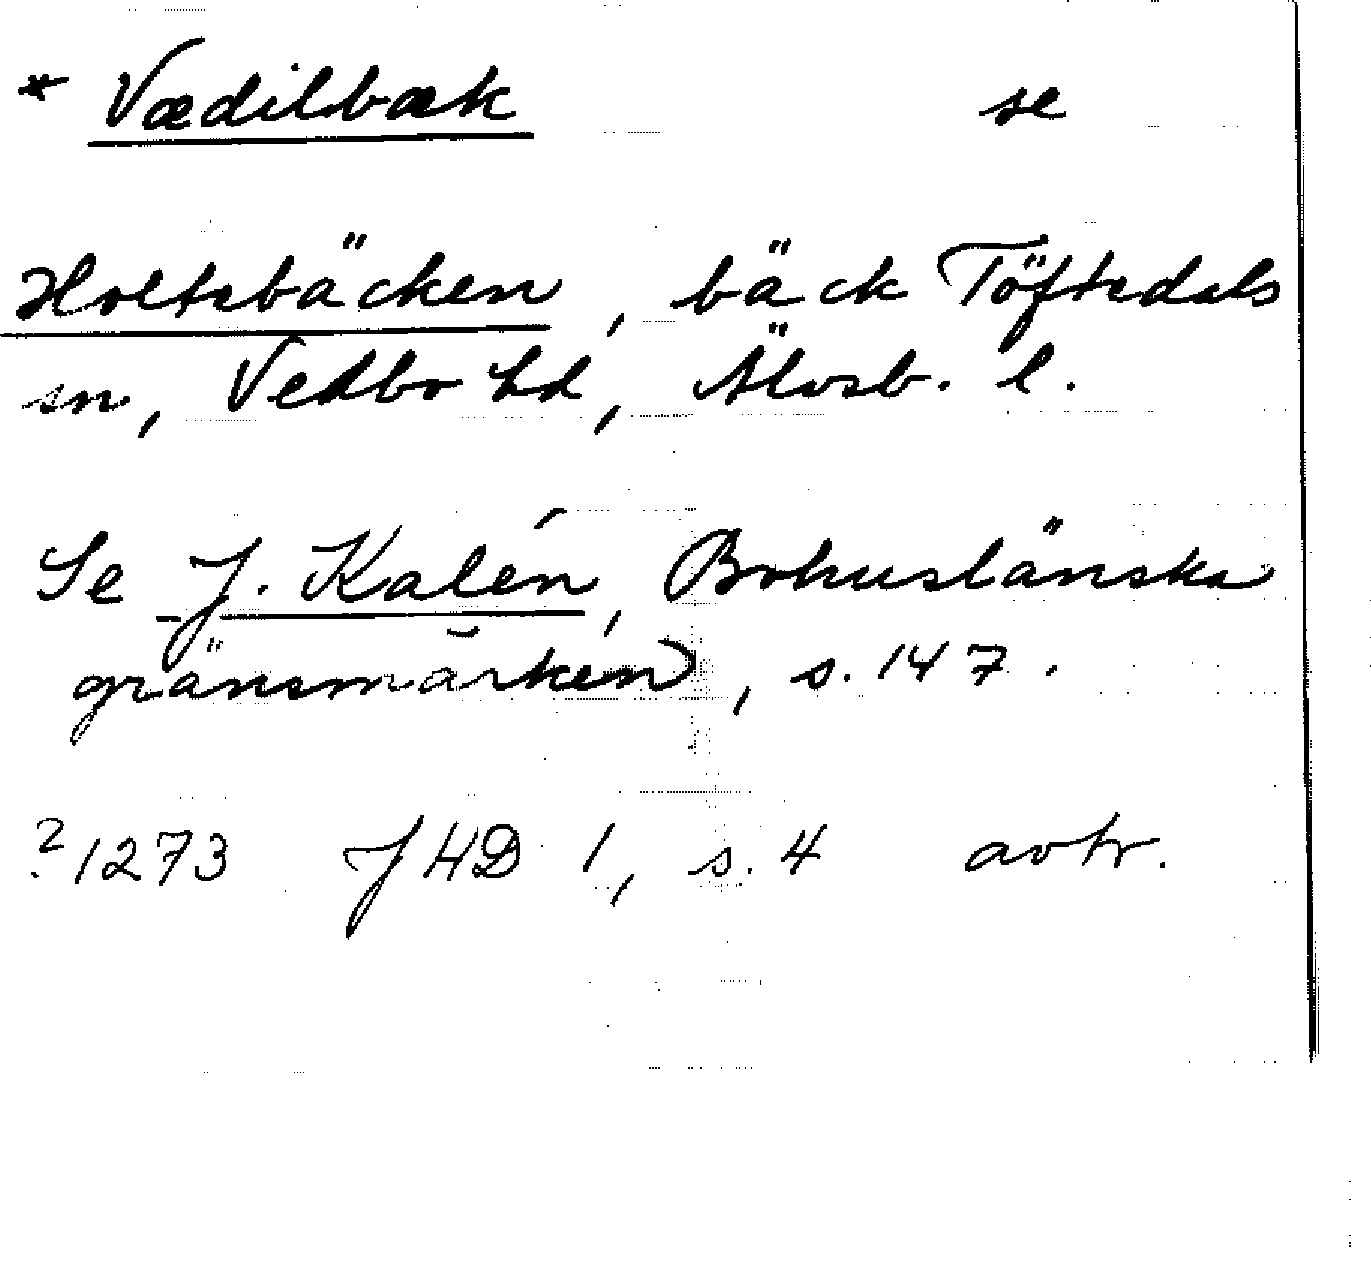 * Vædilbæk se
Holtsbäcken, bäck Töftedals
sn, Vedbo hd, Älvsb. l.
Se J. Kalén, Bohuslänska
gränsmärken, s. 147.
? 1273 JHD 1, s. 4 avtr.